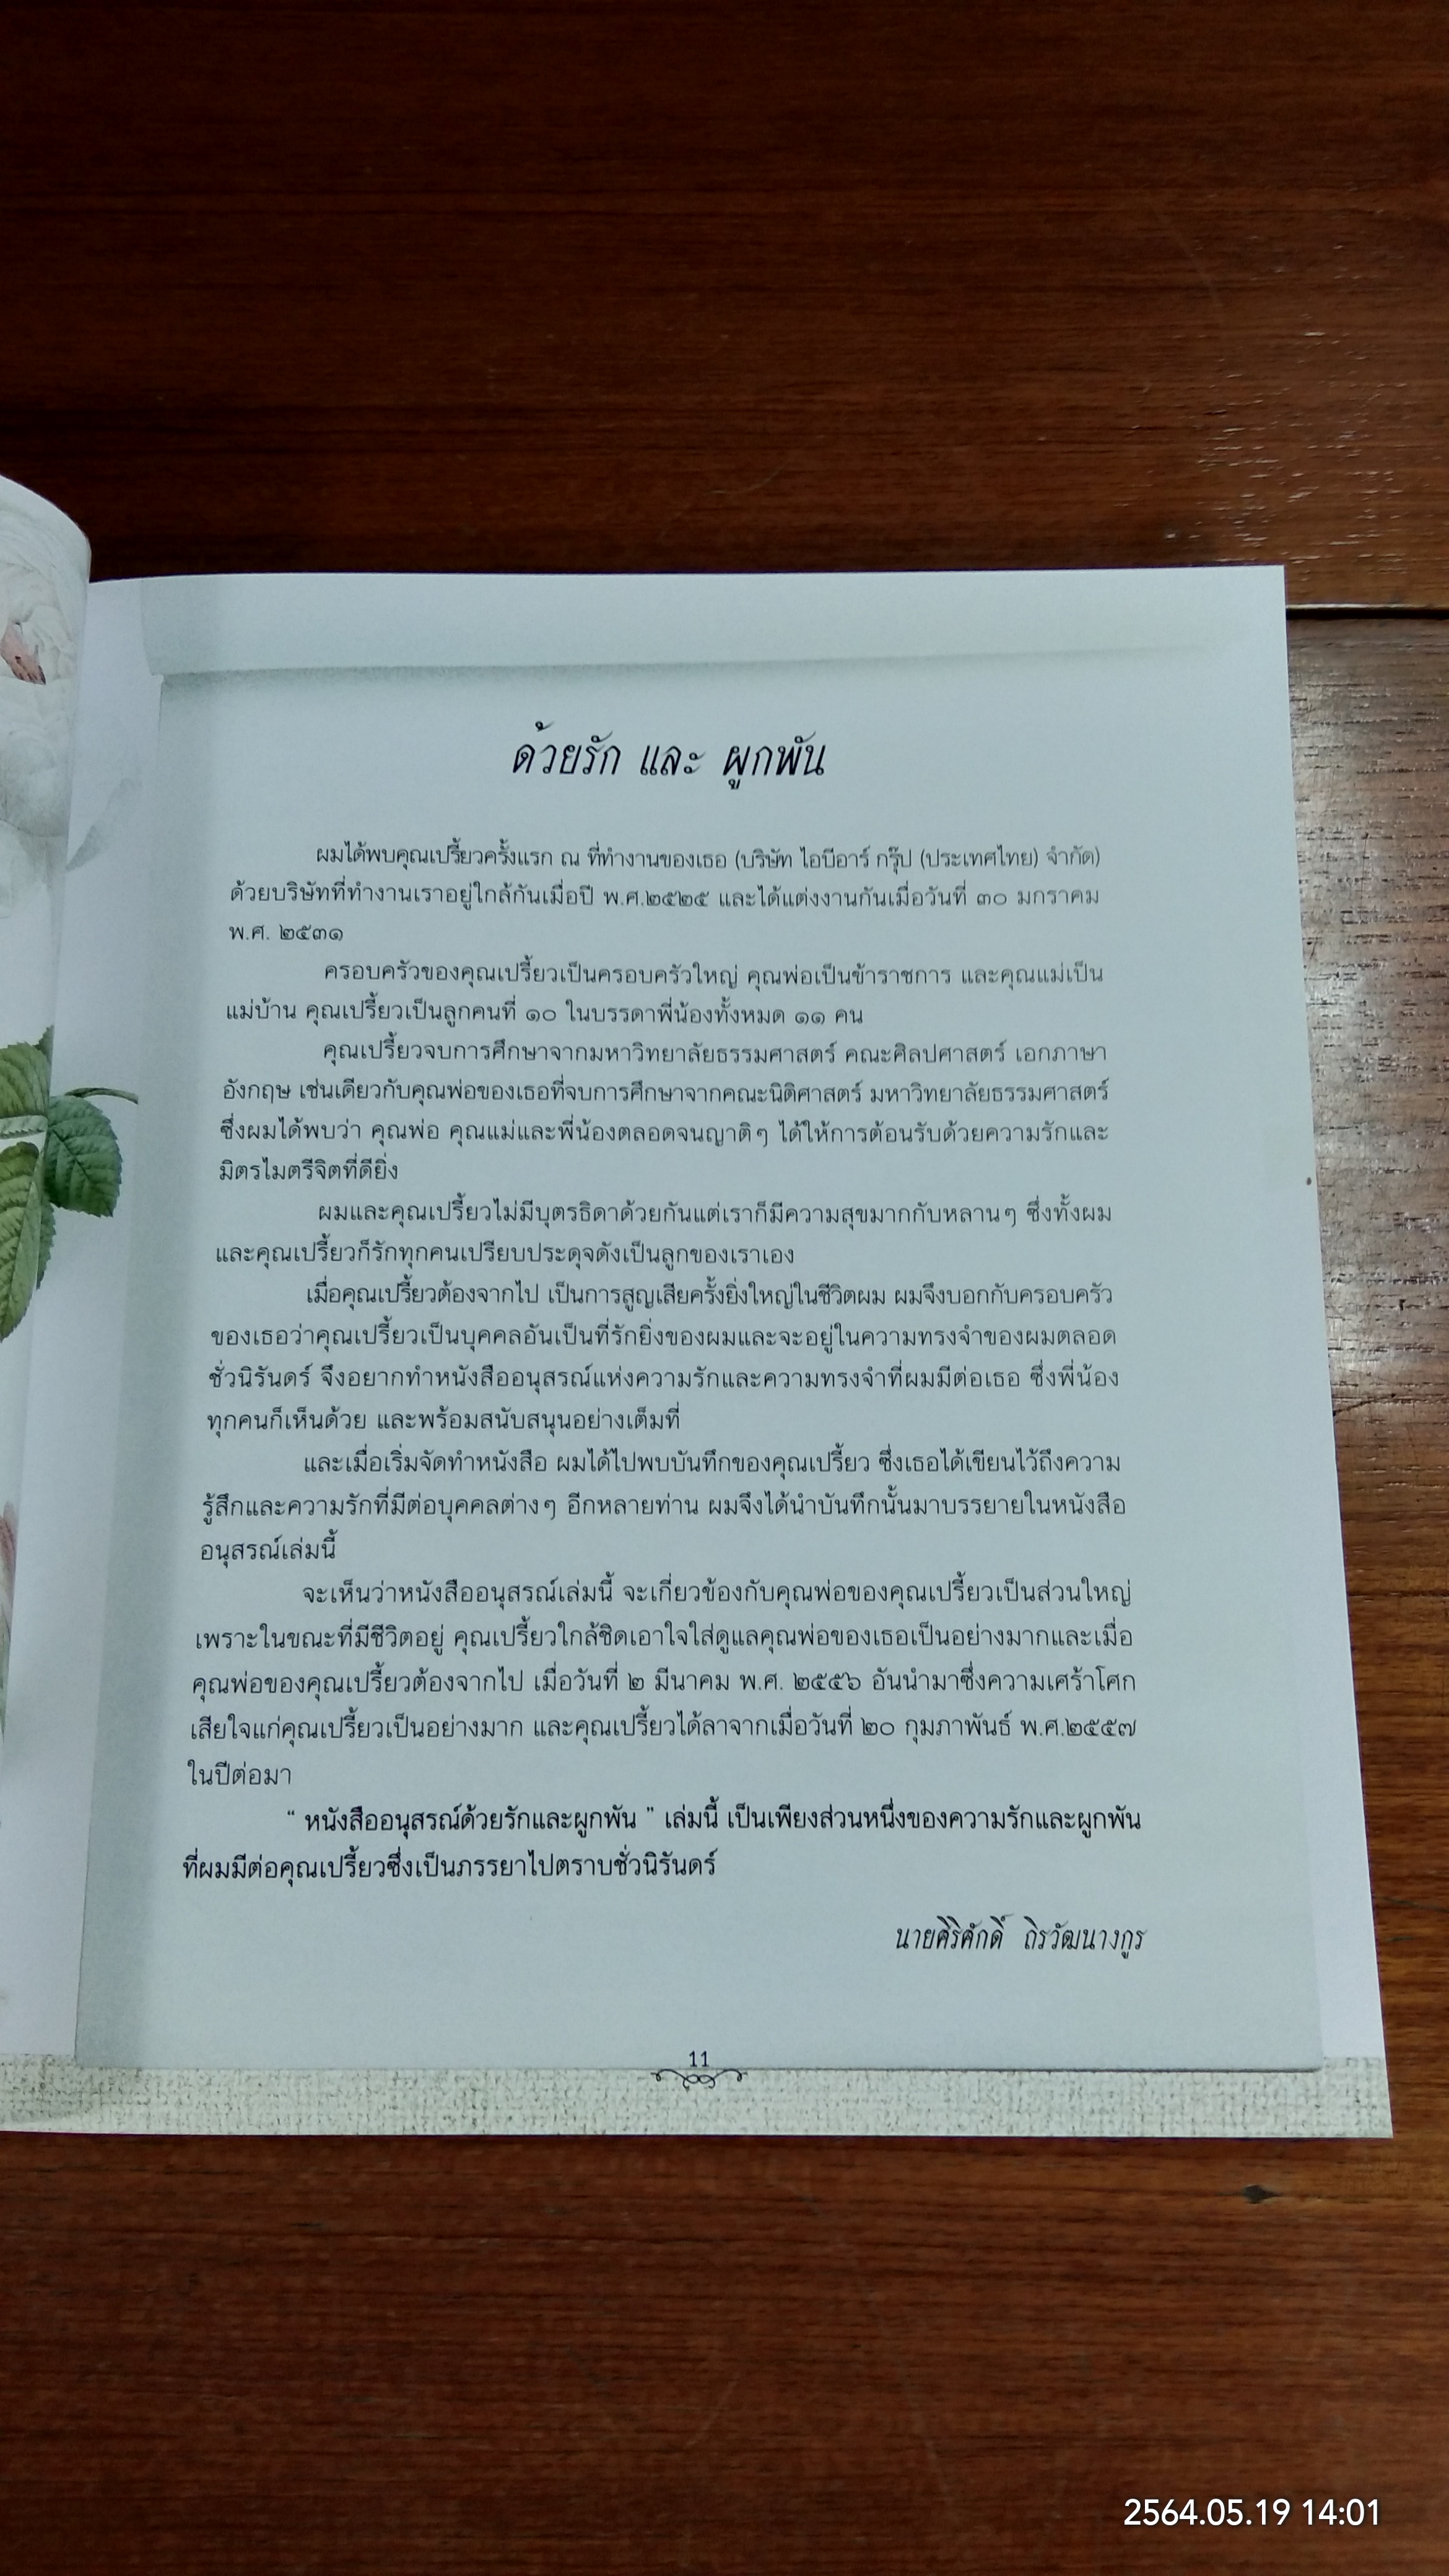 ด้วยรัก และ ผูกพัน
ผมได้พบคุณเปรี้ยวครั้งแรก ณ ที่ทำงานของเธอ (บริษัท ไอบีอาร์ กรุ๊ป (ประเทศไทย) จำกัด)
ด้วยบริษัทที่ทำงานเราอยู่ใกล้กันเมื่อปี พ.ศ.๒๕๒๕ และได้แต่งงานกันเมื่อวันที่ ๓๐ มกราคม
พ.ศ. ๒๕๓๑
ครอบครัวของคุณเปรี้ยวเป็นครอบครัวใหญ่ คุณพ่อเป็นข้าราชการ และคุณแม่เป็น
แม่บ้าน คุณเปรี้ยวเป็นลูกคนที่ ๑๐ ในบรรดาพี่น้องทั้งหมด ๑๑ คน
คุณเปรี้ยวจบการศึกษาจากมหาวิทยาลัยธรรมศาสตร์ คณะศิลปศาสตร์ เอกภาษา
อังกฤษ เช่นเดียวกับคุณพ่อของเธอที่จบการศึกษาจากคณะนิติศาสตร์ มหาวิทยาลัยธรรมศาสตร์
ซึ่งผมได้พบว่า คุณพ่อ คุณแม่และพี่น้องตลอดจนญาติๆ ได้ให้การต้อนรับด้วยความรักและ
มิตรไมตรีจิตที่ดียิ่ง
ผมและคุณเปรี้ยวไม่มีบุตรธิดาด้วยกันแต่เราก็มีความสุขมากกับหลานๆ ซึ่งทั้งผม
และคุณเปรี้ยวก็รักทุกคนเปรียบประดุจดังเป็นลูกของเราเอง
เมื่อคุณเปรี้ยวต้องจากไป เป็นการสูญเสียครั้งยิ่งใหญ่ในชีวิตผม ผมจึงบอกกับครอบครัว
ของเธอว่าคุณเปรี้ยวเป็นบุคคลอันเป็นที่รักยิ่งของผมและจะอยู่ในความทรงจำของผมตลอด
ชั่วนิรันดร์ จึงอยากทำหนังสืออนุสรณ์แห่งความรักและความทรงจำที่ผมมีต่อเธอ ซึ่งพี่น้อง
ทุกคนก็เห็นด้วย และพร้อมสนับสนุนอย่างเต็มที่
และเมื่อเริ่มจัดทำหนังสือ ผมได้ไปพบบันทึกของคุณเปรี้ยว ซึ่งเธอได้เขียนไว้ถึงความ
รู้สึกและความรักที่มีต่อบุคคลต่างๆ อีกหลายท่าน ผมจึงได้นำบันทึกนั้นมาบรรยายในหนังสือ
อนุสรณ์เล่มนี้
จะเห็นว่าหนังสืออนุสรณ์เล่มนี้ จะเกี่ยวข้องกับคุณพ่อของคุณเปรี้ยวเป็นส่วนใหญ่
เพราะในขณะที่มีชีวิตอยู่ คุณเปรี้ยวใกล้ชิดเอาใจใส่ดูแลคุณพ่อของเธอเป็นอย่างมากและเมื่อ
คุณพ่อของคุณเปรี้ยวต้องจากไป เมื่อวันที่ ๒ มีนาคม พ.ศ. ๒๕๕๖ อันนำมาซึ่งความเศร้าโศก
เสียใจแก่คุณเปรี้ยวเป็นอย่างมาก และคุณเปรี้ยวได้ลาจากเมื่อวันที่ ๒๐ กุมภาพันธ์ พ.ศ.๒๕๕๗
ในปีต่อมา
“ หนังสืออนุสรณ์ด้วยรักและผูกพัน ” เล่มนี้ เป็นเพียงส่วนหนึ่งของความรักและผูกพัน
ที่ผมมีต่อคุณเปรี้ยวซึ่งเป็นภรรยาไปตราบชั่วนิรันดร์
นายศิริศักดิ์ ถิรวัฒนางกูร
11
2564.05.19 14:01